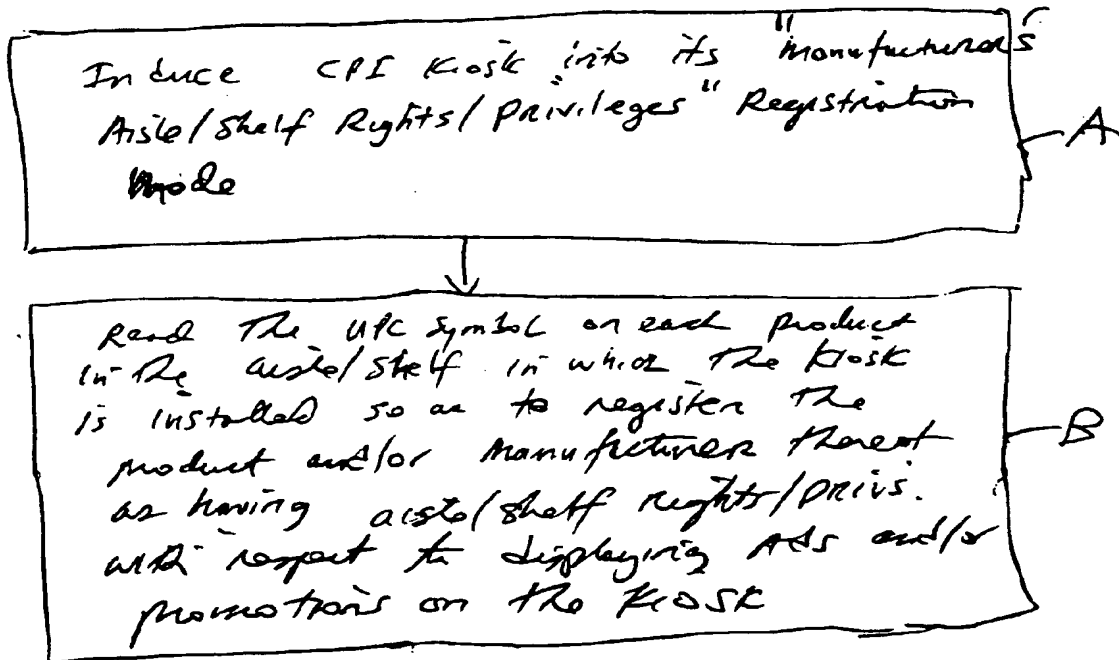 Induce CPI Kiosk into its "Manufacturers
Aisle/Shelf Rights/Privileges" Registration
Mode
A
Read The UPC symbol on each product
in the aisle/shelf in which the kiosk
is installed so as to register the
product and/or Manufacturer thereof
as having aisle/shelf rights/privs.
with respect to displaying Ads and/or
promotions on the Kiosk
B